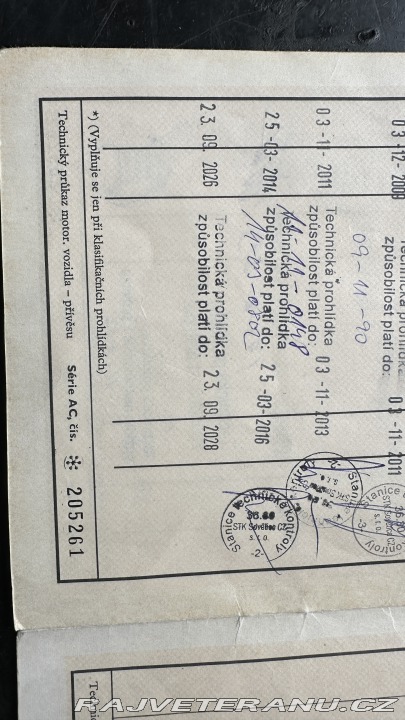 03-12-2009
Technická prohlídka
způsobilost platí do: 03-11-2011
09-11-90
03-11-2011
Technická prohlídka
způsobilost platí do: 03-11-2013
11-11-0148
25-03-2014
Technická prohlídka
způsobilost platí do: 25-03-2016
14-03-0802
23.09.2026
Technická prohlídka
způsobilost platí do: 23.09.2028
Stanice technické kontroly
36.60
STK Sovětice CZ
s.r.o.
-2-
Stanice
-2-
Stanice
36.60
s.r.o.
-3-
Kontroly
*) (Vyplňuje se jen při klasifikačních prohlídkách)
Technický průkaz motor. vozidla – přívěsu Série AC, čís. 205261
RAJVETERANU.CZ